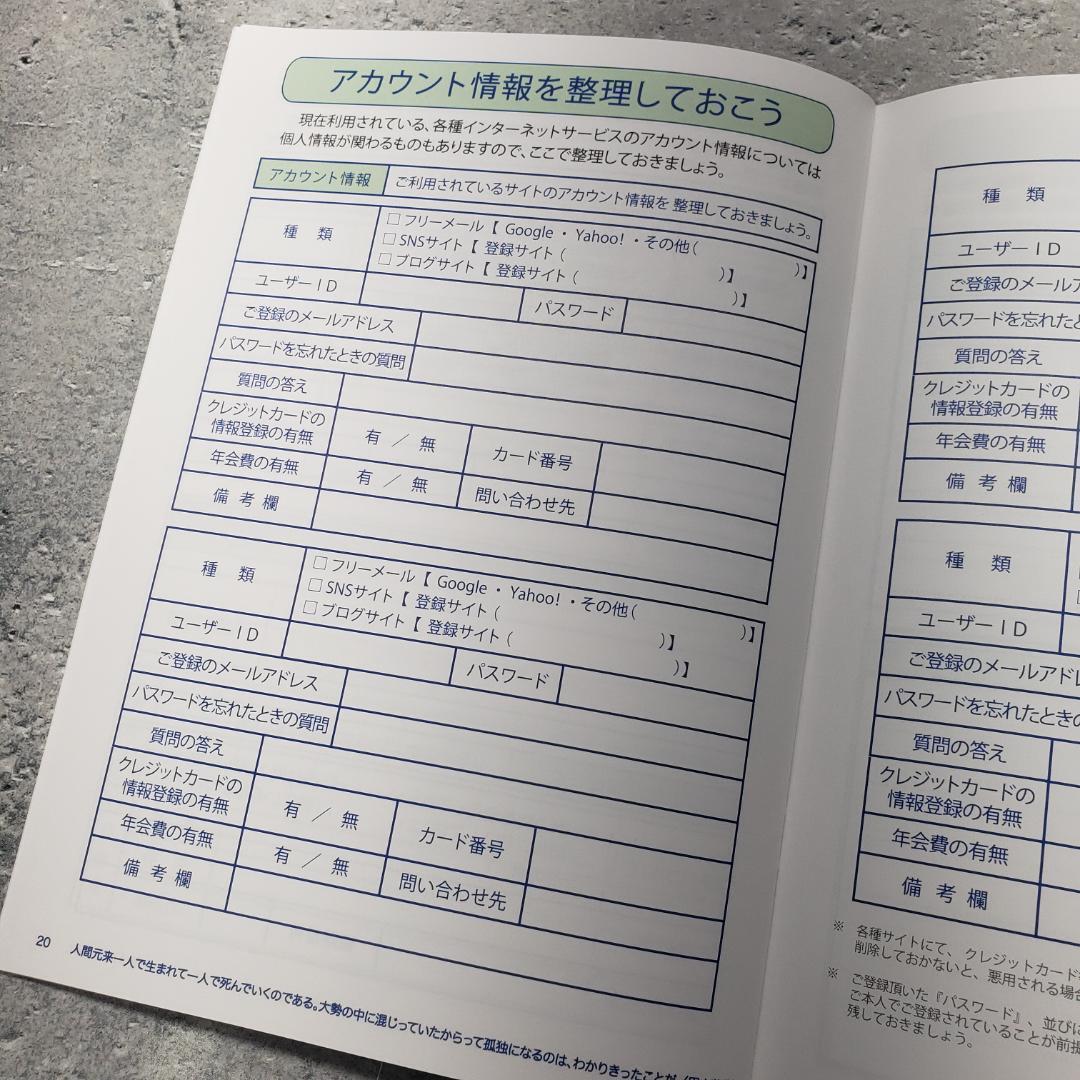 アカウント情報を整理しておこう
現在利用されている、各種インターネットサービスのアカウント情報については
個人情報が関わるものもありますので、ここで整理しておきましょう。
アカウント情報 ご利用されているサイトのアカウント情報を 整理しておきましょう。
種 類
□ フリーメール【 Google ・ Yahoo! ・その他( )】
□ SNSサイト【 登録サイト ( )】
□ ブログサイト【 登録サイト ( )】
ユーザーID パスワード
ご登録のメールアドレス
パスワードを忘れたときの質問
質問の答え
クレジットカードの
情報登録の有無
有 ／ 無 カード番号
年会費の有無 有 ／ 無 問い合わせ先
備 考 欄
種 類
□ フリーメール【 Google ・ Yahoo! ・その他( )】
□ SNSサイト【 登録サイト ( )】
□ ブログサイト【 登録サイト ( )】
ユーザーID パスワード
ご登録のメールアドレス
パスワードを忘れたときの質問
質問の答え
クレジットカードの
情報登録の有無
有 ／ 無 カード番号
年会費の有無 有 ／ 無 問い合わせ先
備 考 欄
20 人間元来一人で生まれて一人で死んでいくのである。大勢の中に混じっていたからって孤独になるのは、わかりきったことが
種 類
ユーザーID
ご登録のメール
パスワードを忘れたと
質問の答え
クレジットカードの
情報登録の有無
年会費の有無
備 考 欄
種 類
ユーザーID
ご登録のメールアド
パスワードを忘れたとき
質問の答え
クレジットカードの
情報登録の有無
年会費の有無
備 考 欄
※ 各種サイトにて、クレジットカード
削除しておかないと、悪用される場合
※ ご登録頂いた『パスワード』、並びに
ご本人でご登録されていることが前提
残しておきましょう。